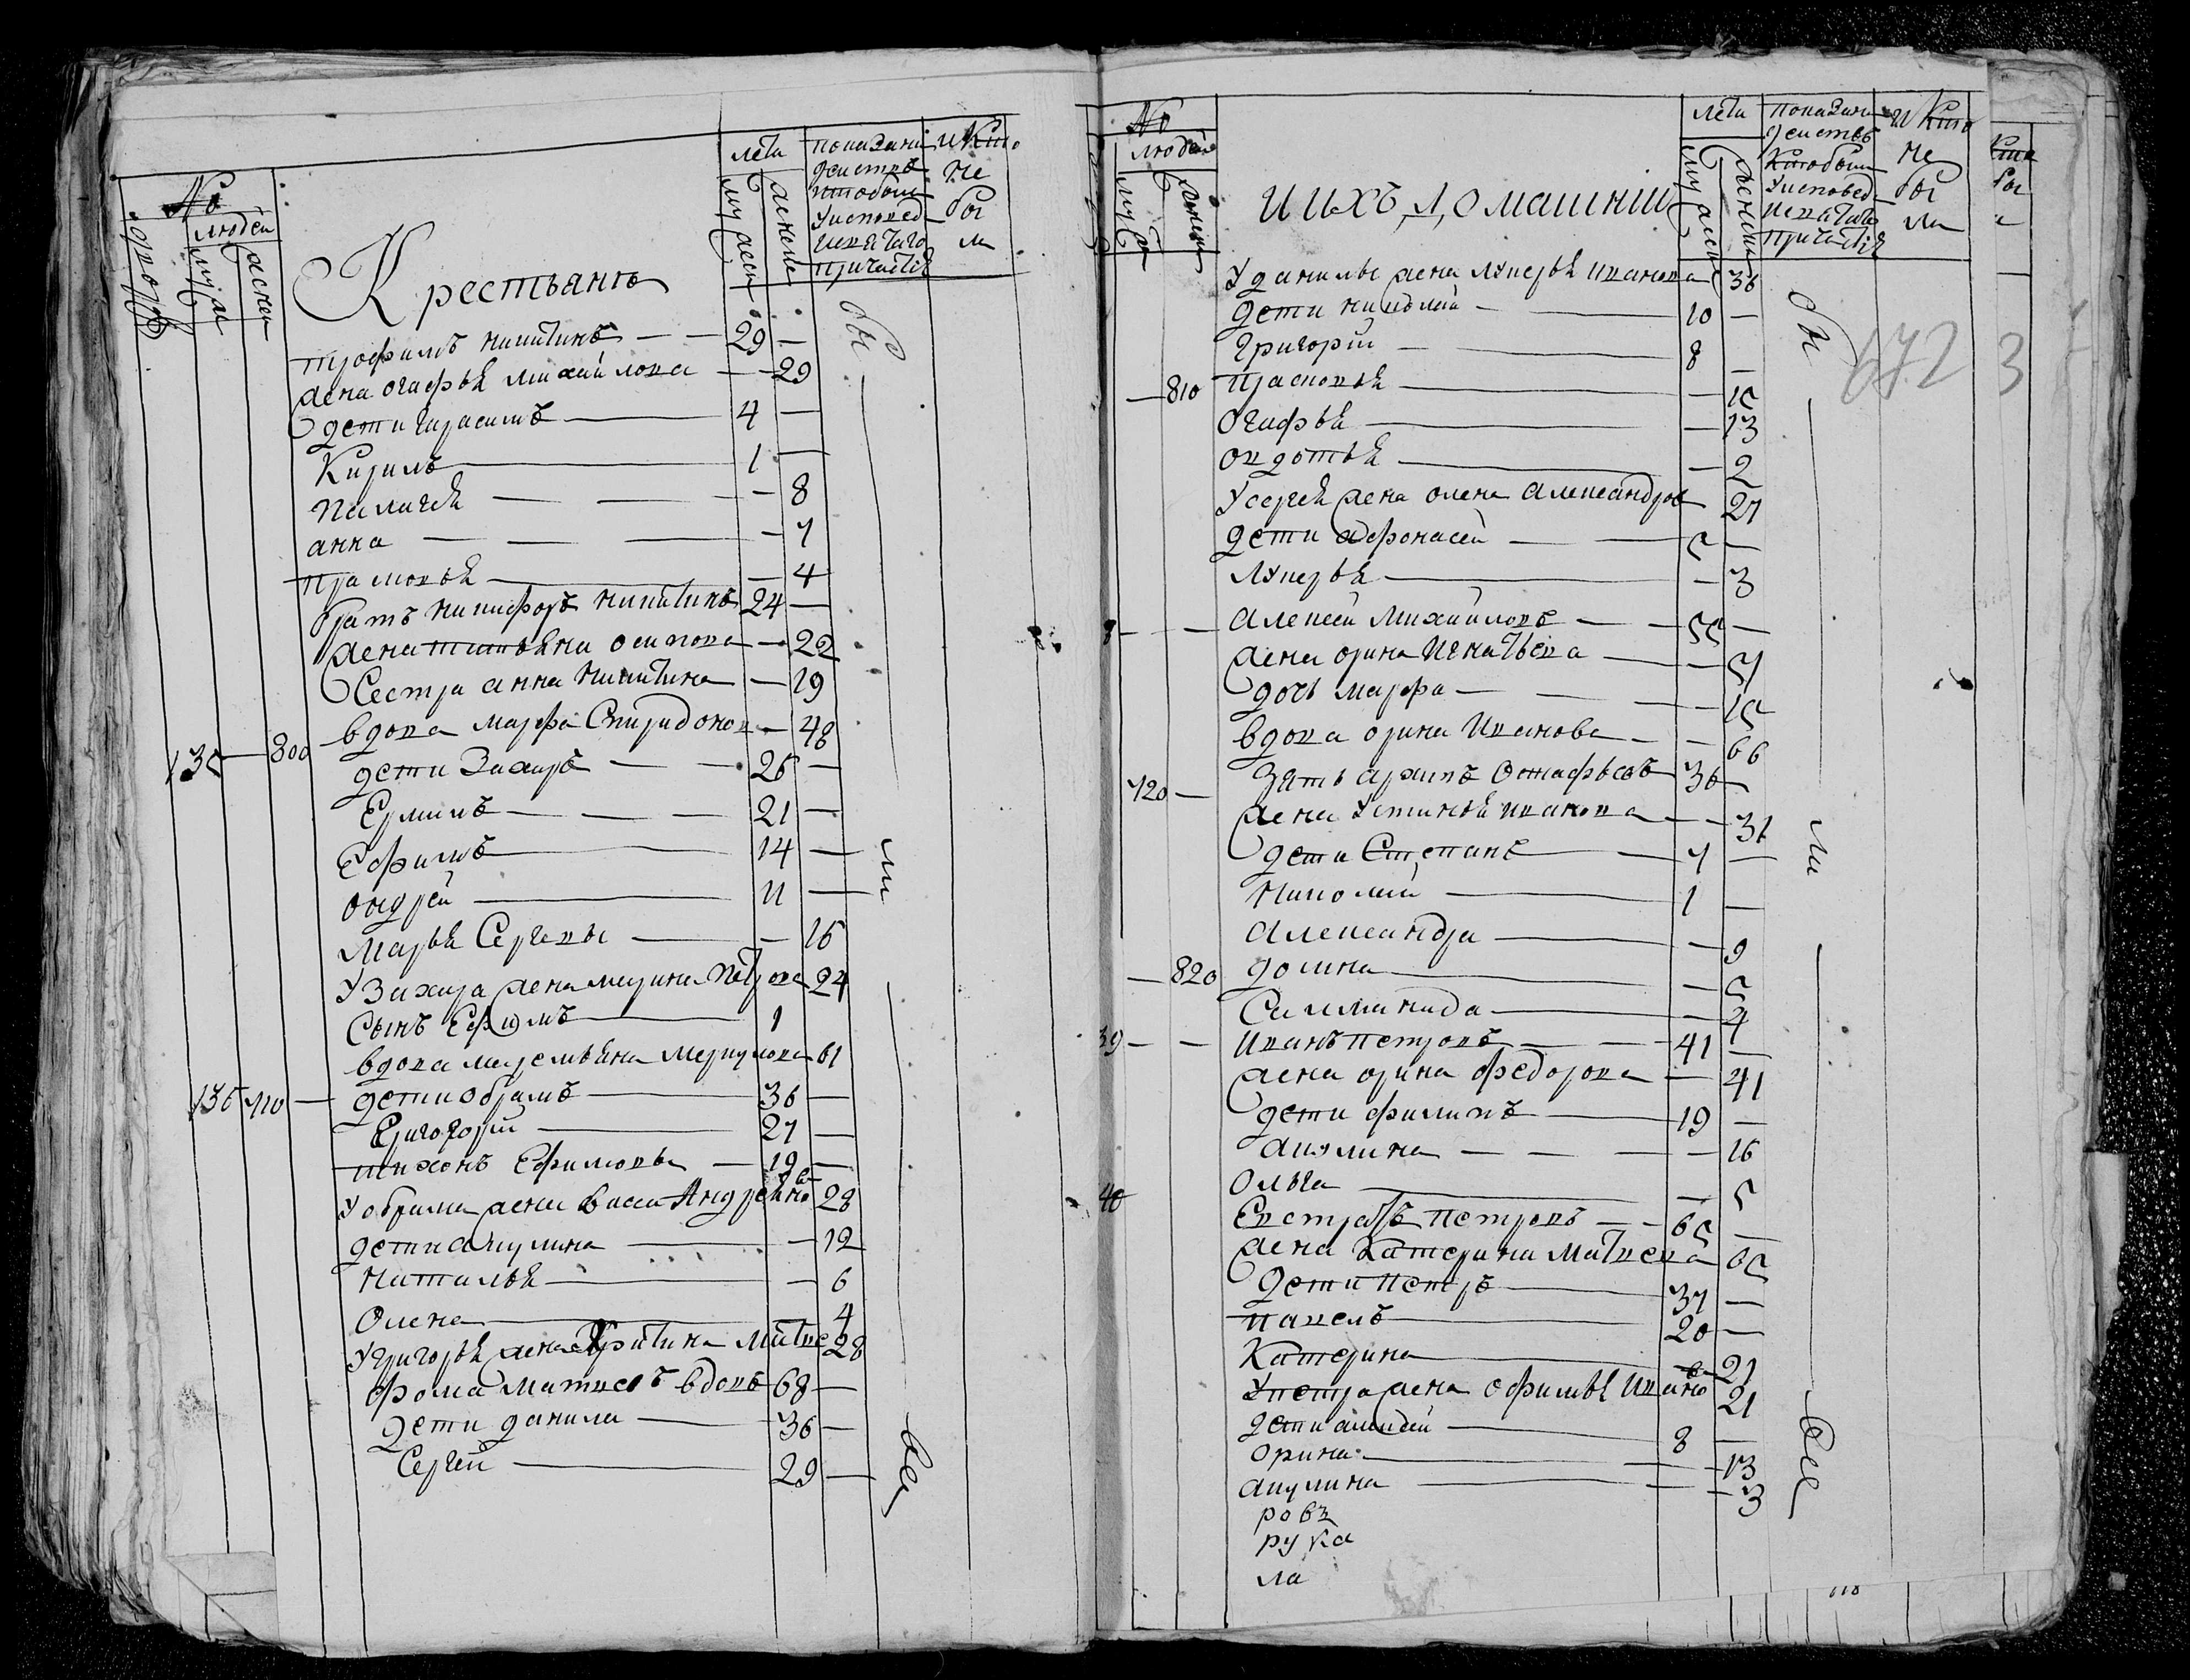 №
людей
дворов
муж
женск
Крестьянъ
лета
муж
женс
показани
действъ
ктобыл
Уисповед
иСвятаго
причастiя
и Кто
Не
бы
ли
трофимъ никитинъ — 29 —
жена огафья михайлова — 29
дети гарасимъ — 4 —
Кирилъ — 1 —
пилагея — 8
анна — 7
прасковья — 4
братъ никифоръ никитинъ 24 —
жена татьяна осипова — 22
Сестра анна никитина — 19
135 — 800 вдова марфа Спиридонов — 48
дети Захаръ — 26 —
Ермилъ — 21 —
Ефимъ — 14 —
ондрей — 11 —
Марья Сергевы — 16
У Захара жена марина петрова 24
Сынъ Ефимъ — 1
вдова маремьяна меркулова 61
136 710 — дети обрамъ — 36 —
Григорей — 27 —
тихонъ Ефимовы — 19 —
У обрама жена Васса Андреяно ва 28
дети акулина — 12
Наталья — 6
Олена — 4
У григорья жена Хритина Матве 28
фома матвеевъ вдовъ 68 —
дети данила — 36 —
Сергей — 29 —
бы
ли
все
№
людей
муж
женск
и ихъ домашнiи
лета
муж
женски
показани
действъ
Ктобыл
Уисповед
иСвятаго
причастiя
и Кто
Не
бы
ли
У данилы жена лукерья иванова 36
дети николай — 10 —
григорiй — 8 —
— 810 прасковья — 15
Огафья — 13
овдотья — 2
У сергея жена олена александров 27
дети афонасей — 5 —
лукерья — 3
8 — — алексей михайловъ — 55 —
жена орина игнатьева — 57
дочь марфа — 15
вдова орина Иванова — 66
720 — зять архипъ Остафьевъ 36 —
жена Устинья иванова — 31
дети Степанъ — 7 —
николай — 1 —
александра — 9
— 820 домна — 5
Саламанида — 4
39 — — иванъ петровъ — 41 —
жена орина федорова — 41
дети филипъ — 19 —
акулина — 16
Ольга — 5
40 Евстратъ петровъ — 65 —
жена катерина матвева 65
дети петръ — 37 —
павелъ — 20 —
Катерина — 21
У петра жена офимья Ивано ва 21
дети — 8 —
орина — 13
акулина — 3
ровъ
рука
ла
бы
ли
все
672
3
118